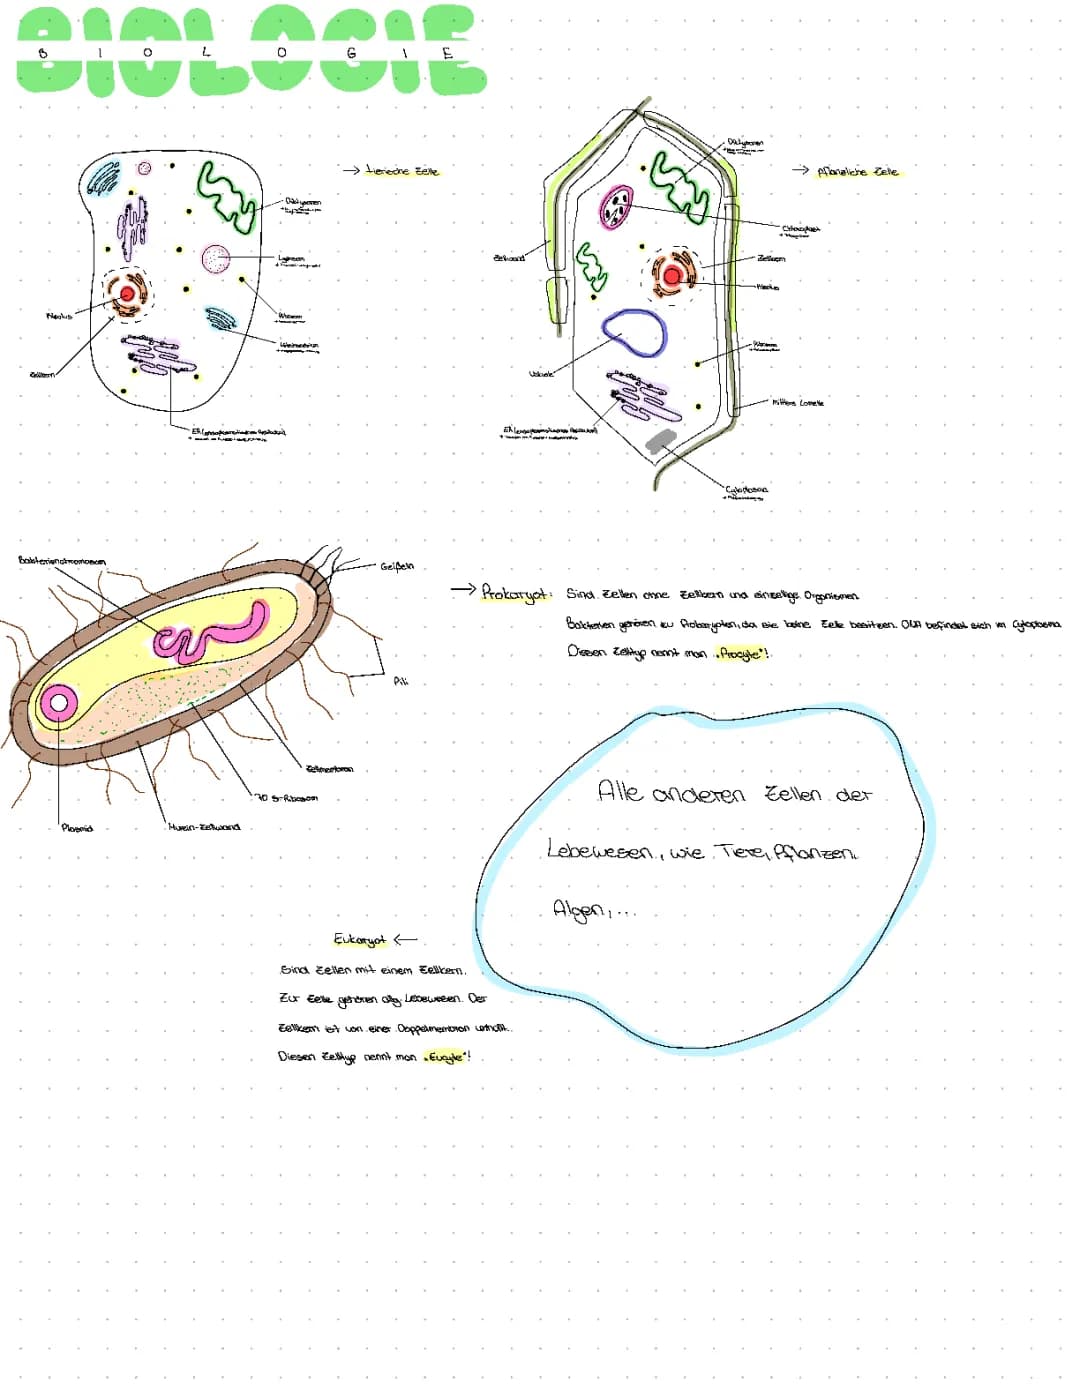 BIOLOGIE
B I O L O G I E
→ tierische Zelle
→ pflanzliche Zelle
Diktyosomen
Diktyosomen
Chloroplast
Zellwand
Zellkern
Lysosom
Nukleus
Nukleus
Ribosom
Ribosom
Mitochondrium
Zellkern
Vakuole
Mittlere Lamelle
ER (endoplasmatisches Retikulum)
ER (endoplasmatisches Retikulum)
Cytoplasma
Bakterienchromosom
Geißeln
→ Prokaryot: Sind Zellen ohne Zellkern und einzellige Organismen.
Bakterien gehören zu Prokaryoten, da sie keine Zelle besitzen. DNA befindet sich im Cytoplasma.
Diesen Zelltyp nennt man „Procyte"!
Pili
Zellmembran
70 S-Ribosom
Plasmid
Murein-Zellwand
Alle anderen Zellen der
Lebewesen, wie Tiere, Pflanzen,
Algen, ...
Eukaryot ←
Sind Zellen mit einem Zellkern.
Zur Zelle gehören allg. Lebewesen. Der
Zellkern ist von einer Doppelmembran umhüllt.
Diesen Zelltyp nennt man „Eucyte"!